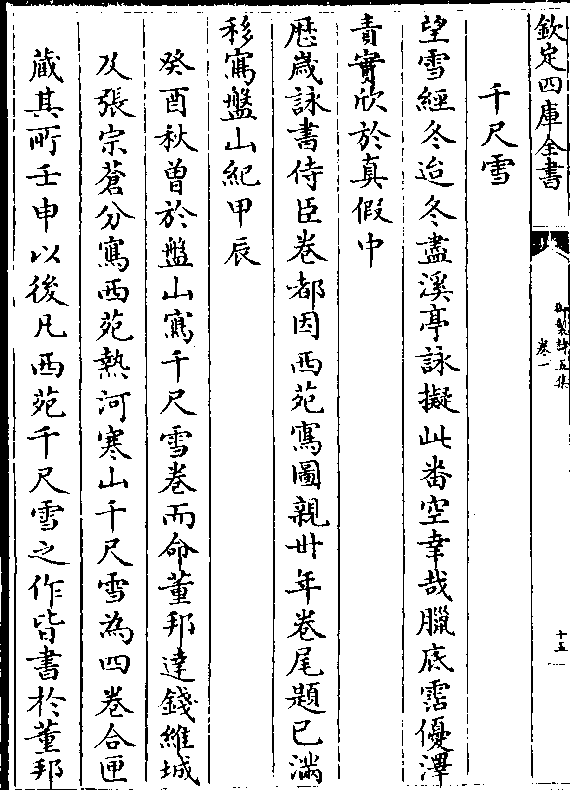 欽定四庫全書
御製詩五集
卷一
十五
千尺雪
望雪經冬迨冬盡溪亭詠擬此番空幸哉臘底霑優澤
責實欣於真假中
歴嵗詠書侍臣卷都因西苑寫圖親卅年卷尾題已滿
移寫盤山紀甲辰
癸酉秋曾於盤山寫千尺雪卷而命董邦達錢維城
及張宗蒼分寫西苑熱河寒山千尺雪為四卷合匣
蔵其所壬申以後凡西苑千尺雪之作皆書於董邦